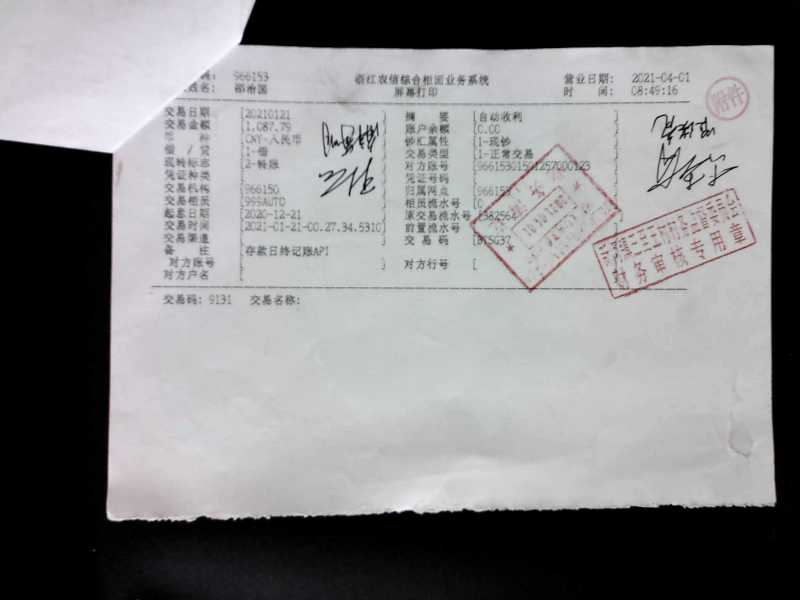 966153 浙江农信综合柜面业务系统 营业日期: 2021-04-01
姓名: 邵治国 屏幕打印 时 间: 08:49:16
附件
交易日期 [20210121 ] 摘 要 [自动收利
交易金额 [1,087.79 账户余额 [0.00
种 [CNY-人民币 钞汇属性 [1-现钞
借 / 贷 [1-借 交易类型 [1-正常交易
现转标志 [2-转账 对方账号 [
凭证种类 [ 凭证号码 [
交易机构 [966150 归属网点 [966153
交易柜员 [999AUTO 柜员流水号 [0
起息日期 [2020-12-21 原交易流水号 [382564
交易时间 [2021-01-21-00.27.34.5310] 前置流水号 [
交易渠道 [ 交 易 码 [
备 注 [存款日终记账API
对方账号 [ ] 对方行号 [
对方户名 [ ]
财务审核专用章
交易码: 9131 交易名称: